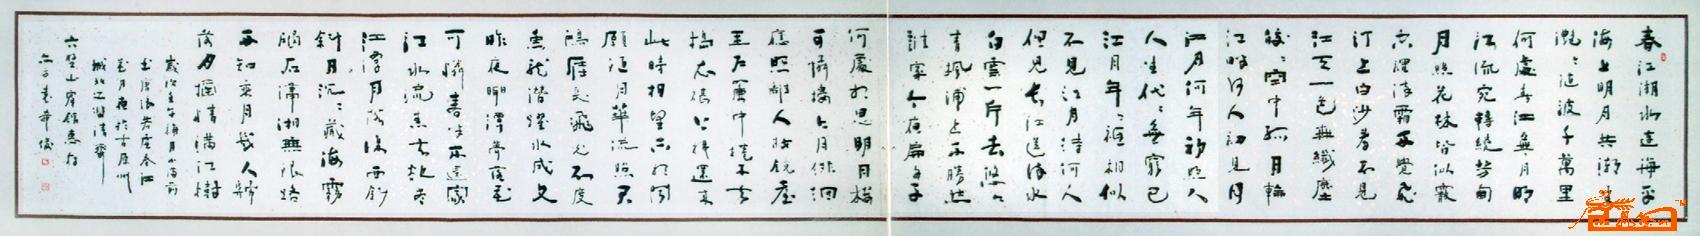 春江湖水連海平
海上明月共潮生
灩〻隨波千萬里
何處春江無月明
江流宛轉繞芳甸
月照花林皆似霰
空裡流霜不覺飛
汀上白沙看不見
江天一色無纖塵
皎〻空中孤月輪
江畔何人初見月
江月何年初照人
人生代〻無窮已
江月年〻祗相似
不見江月待何人
但見長江送流水
白雲一片去悠〻
青楓浦上不勝愁
誰家今夜扁舟子
何處相思明月樓
可憐樓上月徘徊
應照離人妝鏡臺
玉戶簾中捲不去
搗衣砧上拂還來
此時相望不相聞
願逐月華流照君
鴻雁長飛光不度
魚龍潛躍水成文
昨夜閑潭夢落花
可憐春半不還家
江水流春去欲盡
江潭落月復西斜
斜月沉〻藏海霧
碣石瀟湘無限路
不知乘月幾人歸
落月搖情滿江樹